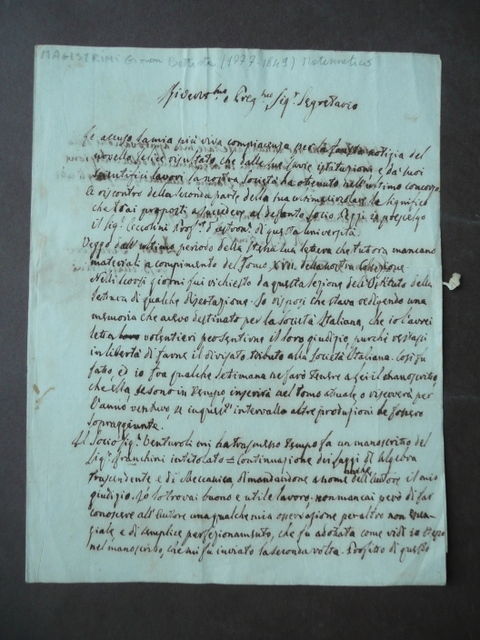 MAGISTRINI Giovan Battista (1777-1849) Matematico
Segretario
Le accuso la mia più viva compiacenza per la fausta notizia del
novello felice risultato che dalle sue savie istituzione e da' suoi
scientifici lavori la nostra Società ha ottenuto nell'ultimo concorso.
A riscontro della seconda parte della sua circolare la significo
che trai proposti a succedere al defonto Socio prescelgo
il Sig. Ceccolini Prof. d'astron. di questa università.
Veggo dall'ultimo periodo della stessa sua lettera che tuttora mancano
materiali a compimento del Tomo XVII della nostra Collezione.
Nelli scorsi giorni fui richiesto da questa sezione dell'Istituto della
lettura di qualche dissertazione. Io risposi che stava stendendo una
memoria che avevo destinato per la Società Italiana, che io l'avrei
letta volentieri per sentirne il loro giudizio, purchè restassi
in libertà di farne il divisato tributo alla Società Italiana. Così fu
fatto, e io fra qualche settimana ne farò tenere a lei il manoscritto,
che ella se sono in tempo inserirà nel tomo attuale o riserverà per
l'anno venturo se in quest' intervallo altre produzioni le fossero
sopraggiunte.
Il Socio Sig. Venturoli mi ha trasmesso tempo fa un manoscritto del
Sig. Franchini intitolato = Continuazione dei saggi di Algebra
trascendente e di Meccanica, dimandandone a nome anche dell'Autore il mio
giudizio. Io lo trovai buono e utile lavoro: non mancai però di far
conoscere all'Autore una qualche mia osservazione peraltro non essen-
ziale e di semplice perfezionamento, che fu adottata come vidi io stesso
nel manoscritto, che mi fu inviato la seconda volta. Profitto di questo